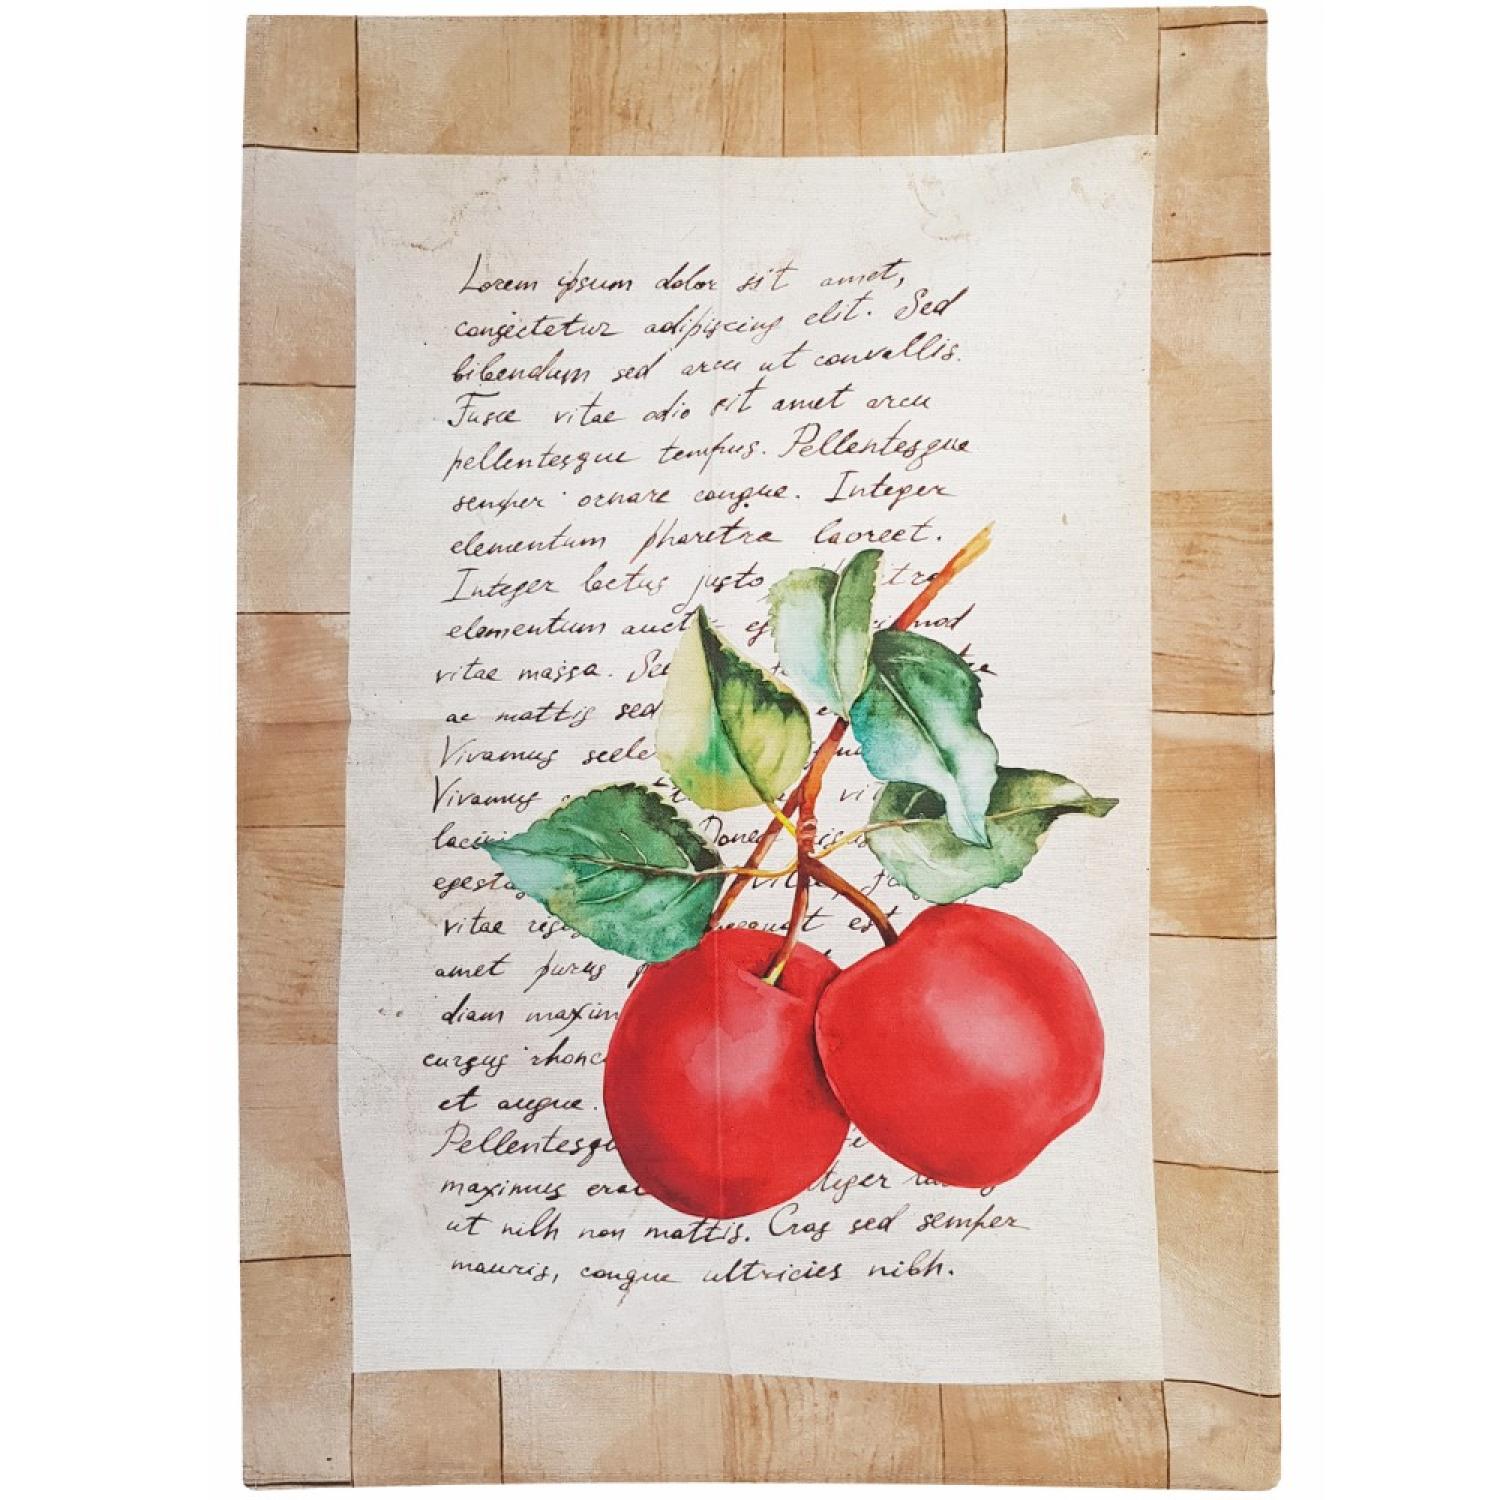 Lorem ipsum dolor sit amet,
consectetur adipiscing elit. Sed
bibendum sed arcu ut convallis.
Fusce vitae odio sit amet arcu
pellentesque tempus. Pellentesque
semper ornare congue. Integer
elementum pharetra laoreet.
Integer lectus justo
elementum auct
vitae massa.
ac mattis sed
Vivamus scele
Vivamus vit
laci Done
egesta vitae
vitae
amet purus
diam maxim
cursus rhonc
et augue.
Pellentesqu
maximus erat
ut nibh non mattis. Cras sed semper
mauris, congue ultricies nibh.